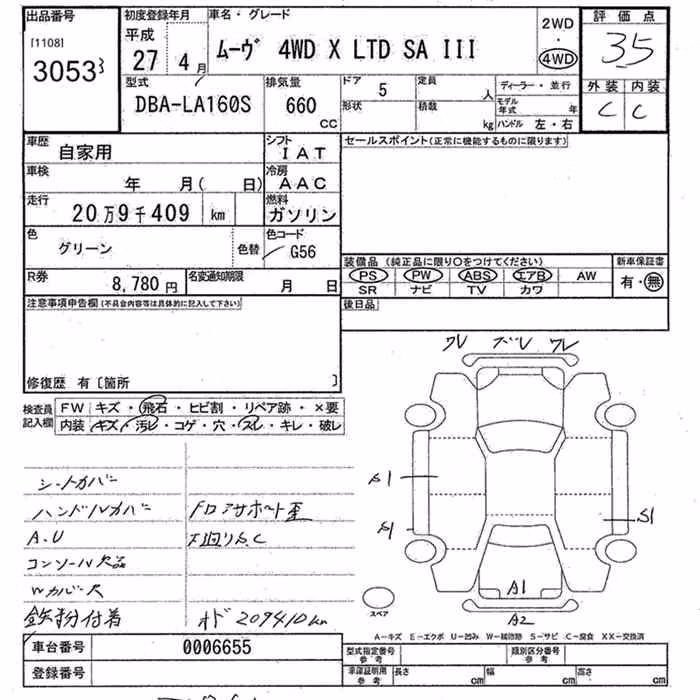 出品番号 初度登録年月 車名・グレード 2WD 評価点
[1108] 平成 ・ 3.5
3053 27 4月 ムーヴ 4WD X LTD SA III 4WD 外装 内装
型式 排気量 ドア 5 定員 人 ディーラー・並行 C C
DBA-LA160S 660 cc 形状 積載 kg モデル年式 年
ハンドル 左・右
車歴 シフト セールスポイント(正常に機能するものに限ります)
自家用 IAT
車検 年 月( 日) 冷房 AAC
走行 20万9千409 km 燃料 ガソリン
色 グリーン 色替 色コード G56
装備品 (純正品に限り○をつけてください) 新車保証書
R券 8,780円 名変通知期限 月 日 PS PW ABS エアB AW 有・無
SR ナビ TV カワ
注意事項申告欄(不具合内容等は具体的に記入して下さい) 後日品
修復歴 有〔箇所 〕
ワレ ズレ ワレ
検査員記入欄 FW キズ・飛石・ヒビ割・リペア跡・×要
内装 キズ・汚レ・コゲ・穴・スレ・キレ・破レ
シートカバー
ハンドルカバー
A.U
コンソール欠品
鉄粉付着 オド209410km
S1
S1
S1
A1
A2
スペア
A-キズ E-エクボ U-凹み W-補修跡 S-サビ C-腐食 XX-交換済
車台番号 0006655 型式指定番号 参考 類別区分番号 参考
登録番号 車庫証明用 参考 長さ cm 幅 cm 高さ cm